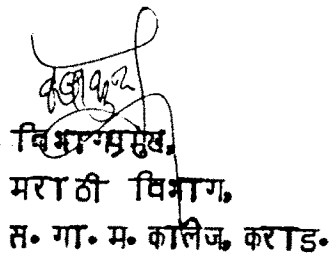 विभागप्रमुख,
मराठी विभाग,
स. गा. म. कालेज, कराड.